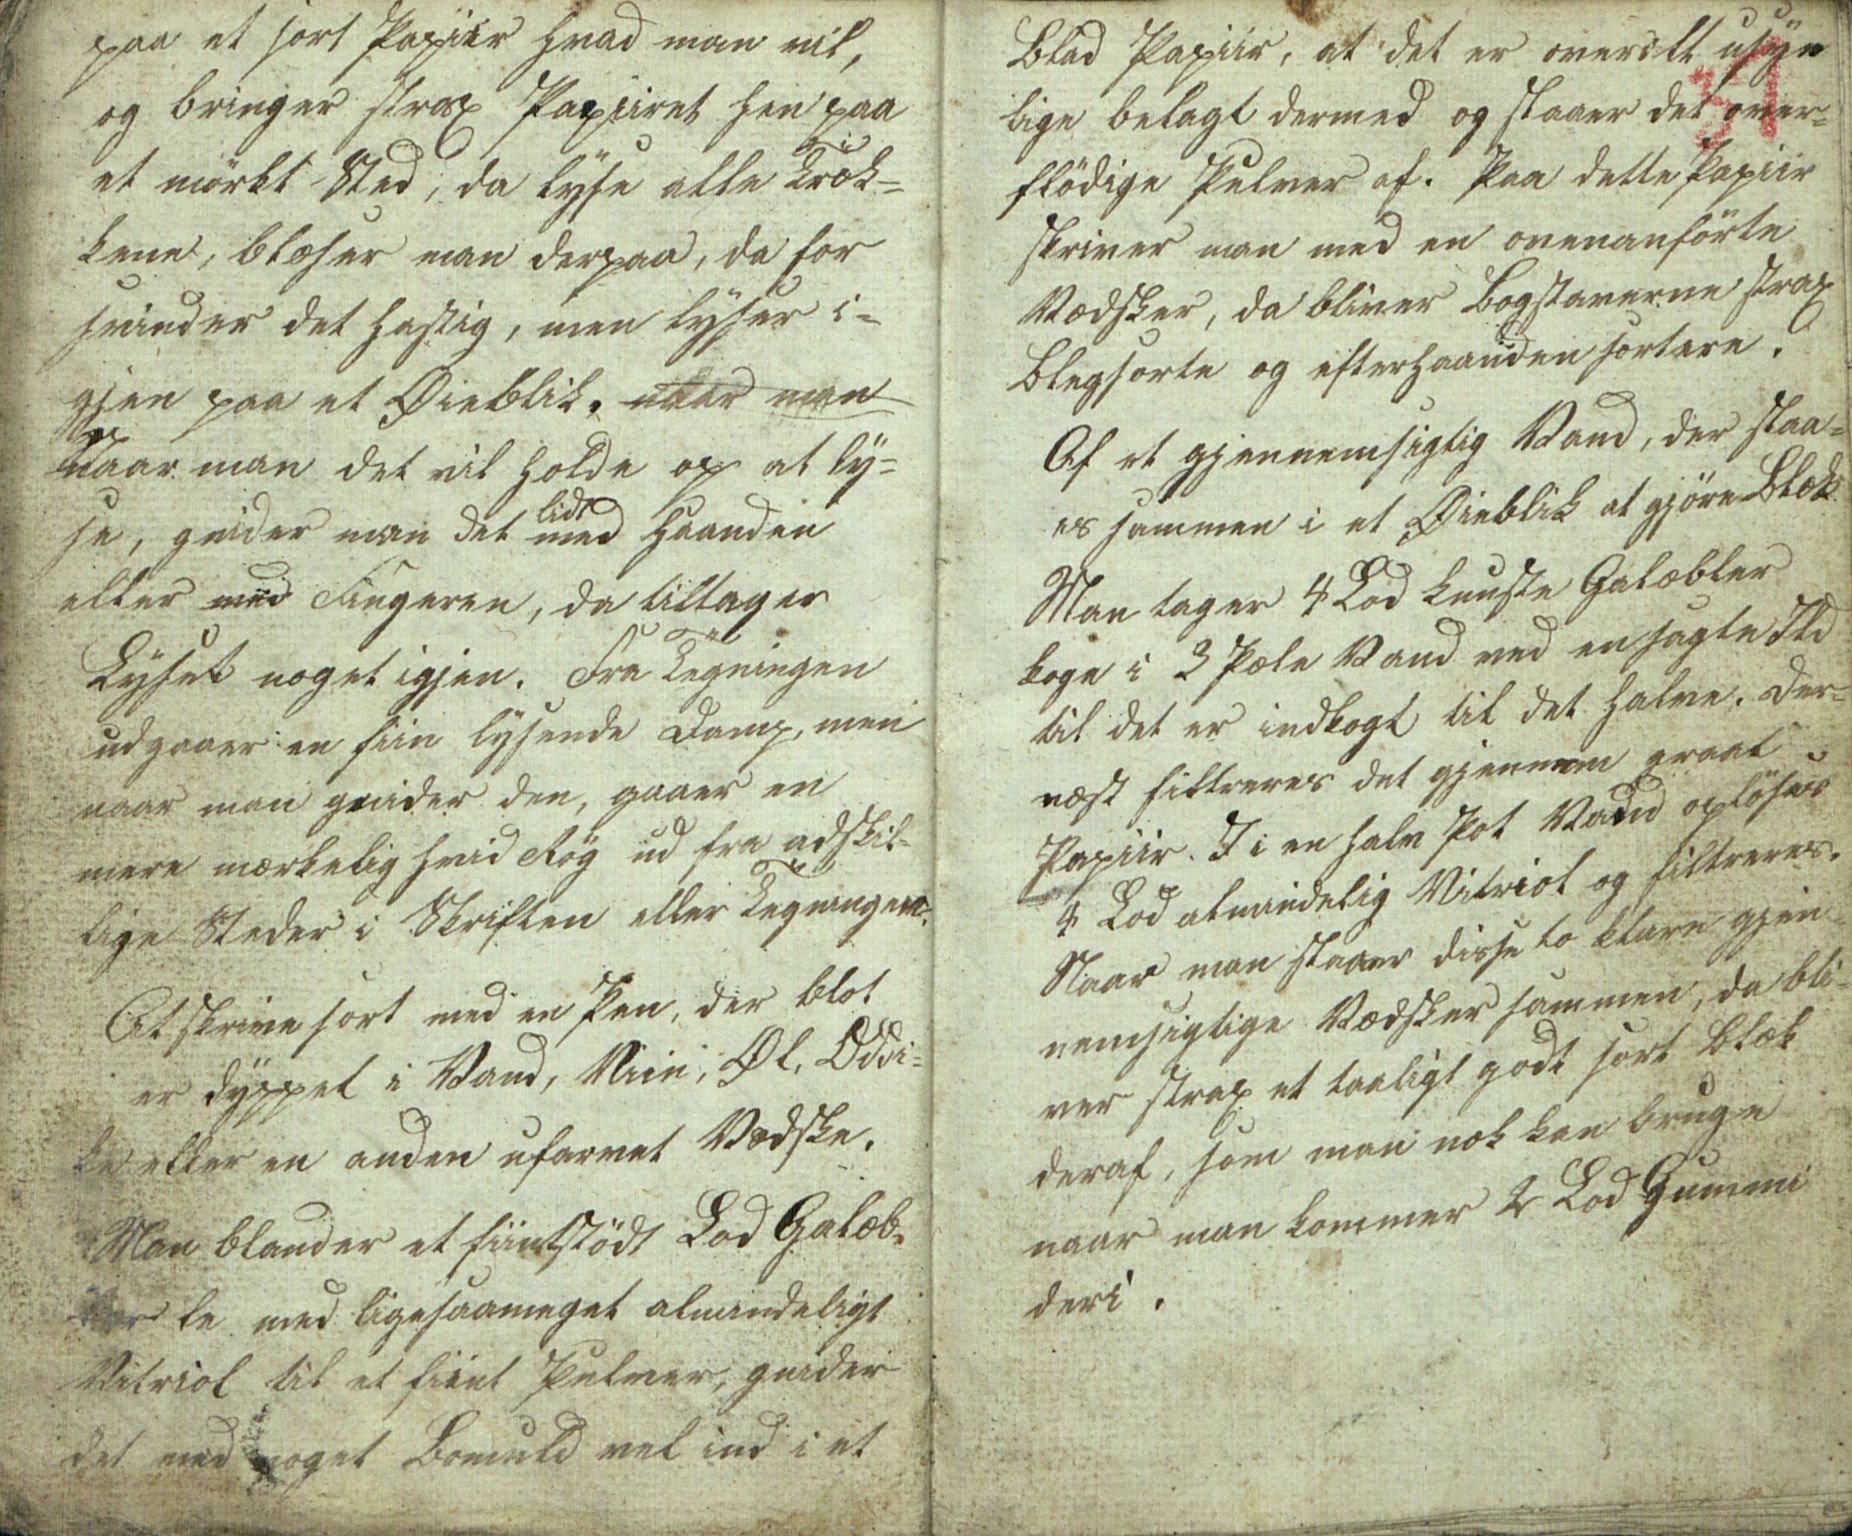 paa et sort Papiir hvad man vil,
og bringer strax Papiiret hen paa
et mörkt Sted, da lyse alle Træk-
kene, blæser man derpaa, da for
svinder det hastig, men lyser i-
gjen paa et Øieblik. naar man
Naar man det vil holde op at ly-
se, gnider man det lidt med Haanden
eller med Fingeren, da tiltager
Lyset noget igjen. Fra Tegningen
udgaaer en fiin lysende Damp, men
naar man gnider den, gaaer en
mere mærkelig hvid Røg ud fra adskil-
lige Steder i Skriften eller Tegningen.
At skrive sort med en Pen, der blot
er dyppet i Vand, Viin, Øl, Eddi-
ke eller en anden ufarvet Vædske.
Man blander et fiintstödt Lod Galæb-
le med ligesaameget almindeligt
Vitriol til et fiint Pulver, gnider
det med noget Bomuld vel ind i et
Blad Papiir, at det er overalt usyn
lige belagt dermed og staaer det over-
flödige Pulver af. Paa dette Papiir
skriver man med en ovenanförte
Vædsker, da bliver Bogstaverne strax
Blegsorte og efterhaanden sortere.
Af et gjennemsigtig Vand, der slaa-
es sammen i et Øieblik at gjöre Blæk
Man tager 4 Lod knuste Galæbler
koge i 3 Pæle Vand ved en sagte Ild
til det er indkogt til det halve. Der-
næst filtreres det gjennem graat
Papiir. I i en halv Pot Vand oplöses
4 Lod almindelig Vitriol og filtreres.
Naar man slaaer disse to klare gjen-
nemsigtige Vædsker sammen, da bli-
ver strax et taaligt godt sort Blæk
deraf, som man nok kan bruge
naar man kommer 2 Lod Gummi
deri.